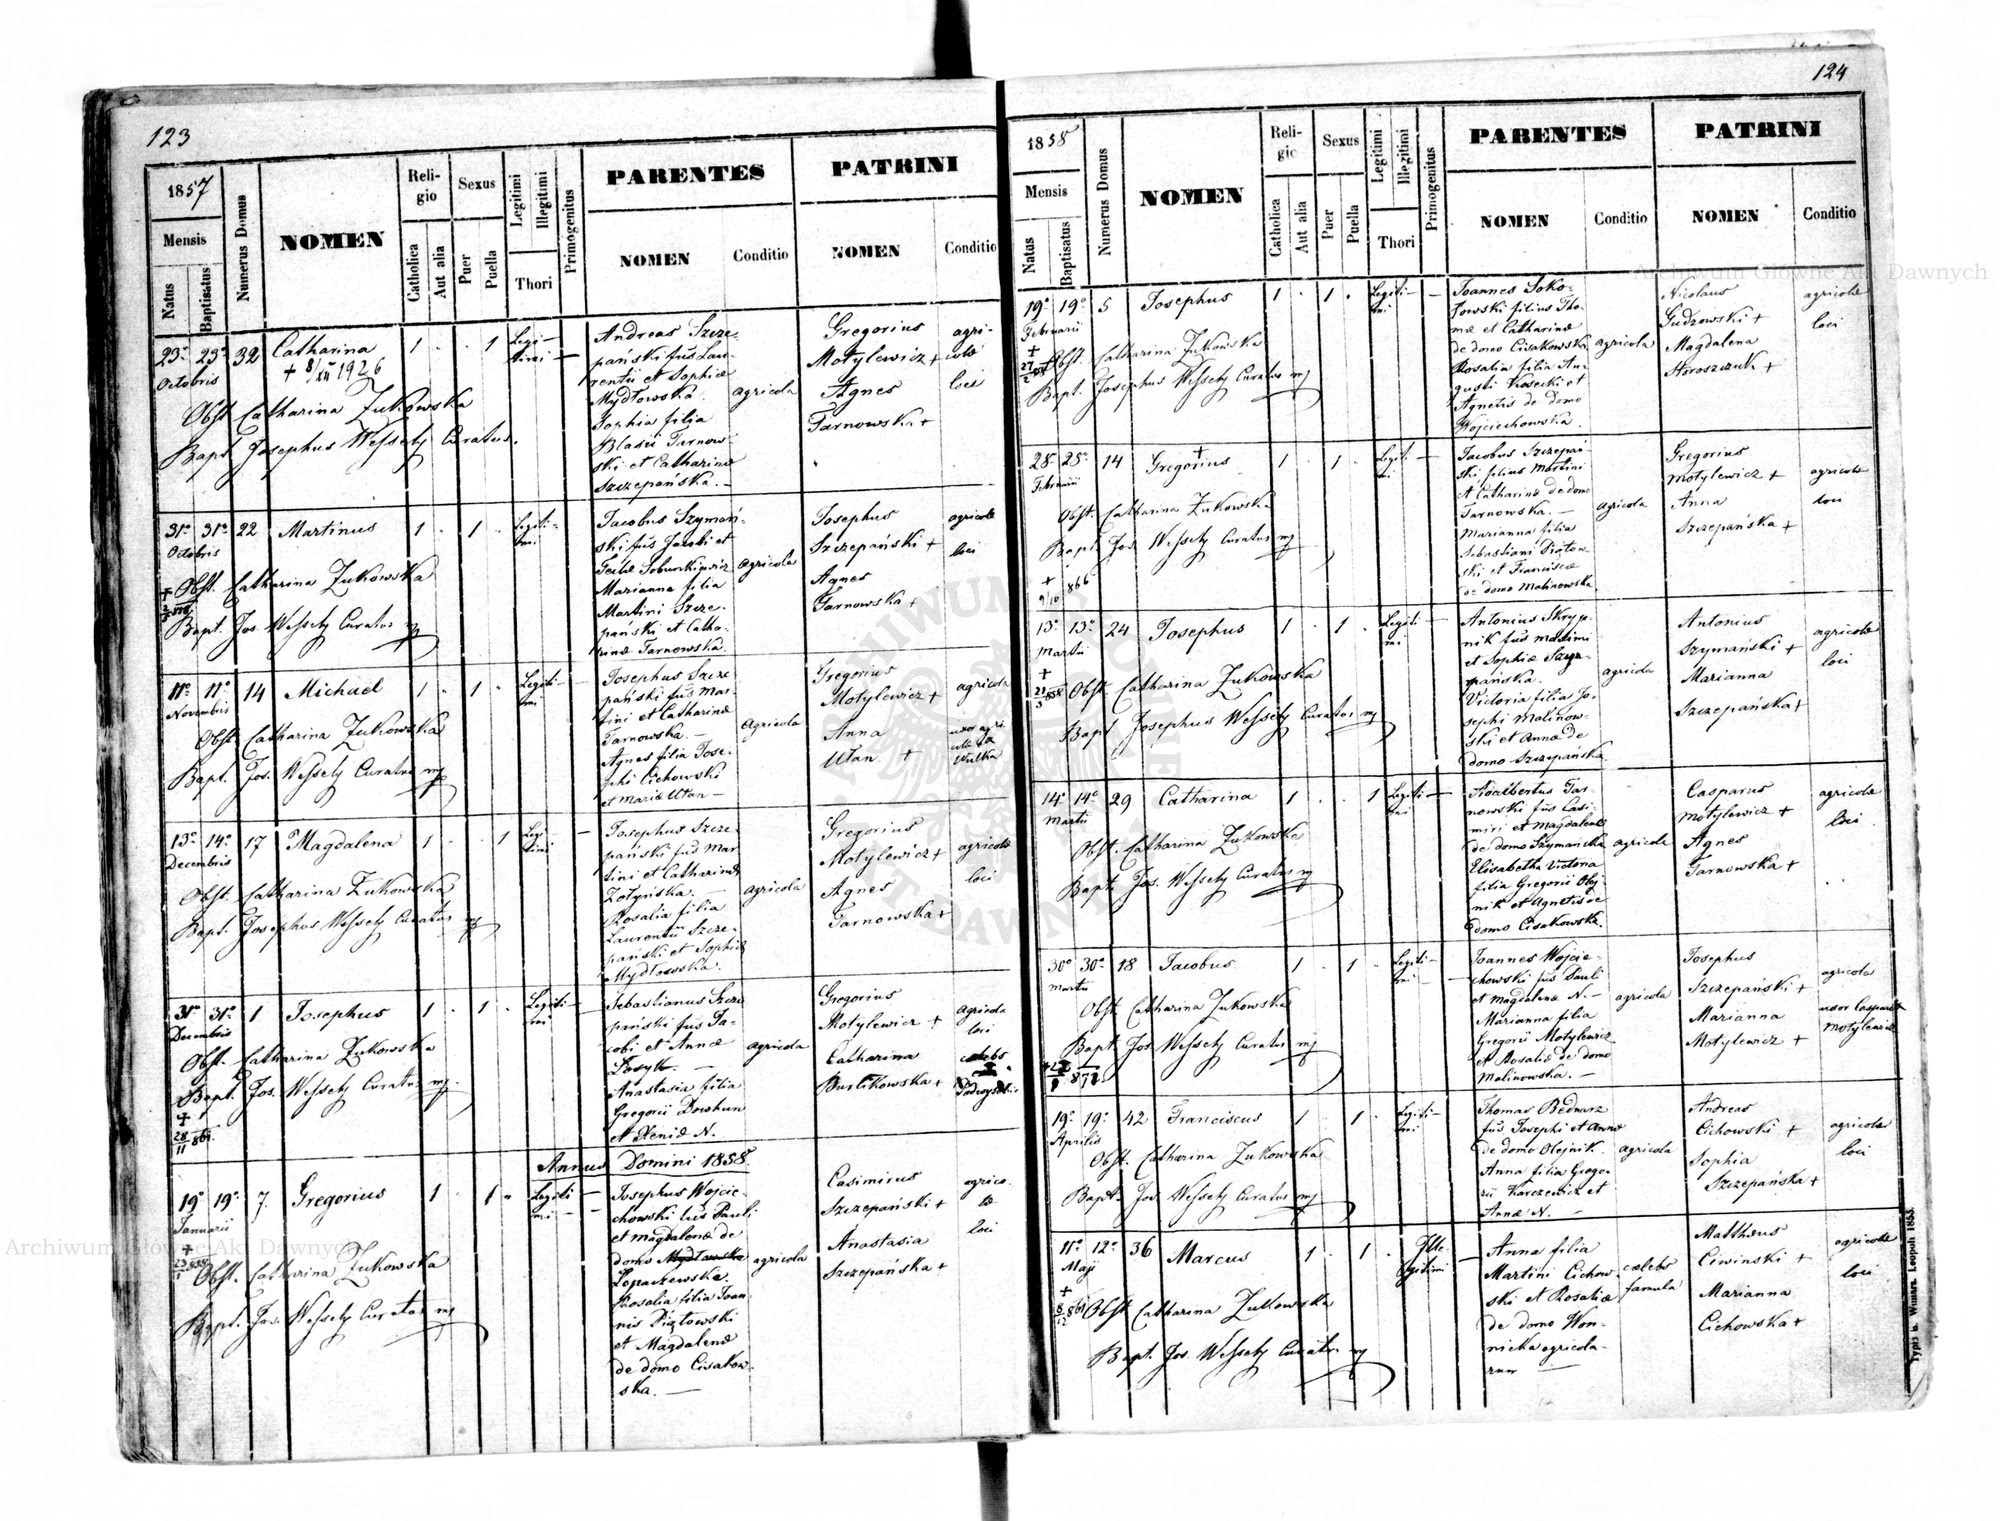 123
1857
Mensis
Natus
Baptisatus
Numerus Domus
NOMEN
Reli-
gio
Catholica
Aut alia
Sexus
Puer
Puella
Legitimi
Illegitimi
Thori
Primogenitus
PARENTES
NOMEN
Conditio
PATRINI
NOMEN
Conditio
23ª 23ª 32 Catharina 1 . . 1 Legi-
timi —
Octobris
+ 8/XII 1926
Obst. Catharina Zukowska
Bapt. Josephus Wessely Curatus.
Andreas Szcze-
pański fus Lau-
rentii et Sophiæ
Mydłowska.
Sophia filia
Blasii Tarnow
ski et Catharinæ
Szczepańska. —
agricola
Gregorius
Motylewicz +
Agnes
Tarnowska +
agri-
colæ
loci
31ª 31ª 22 Martinus 1 . 1 . Legiti-
mi
Octobris
Obst. Catharina Zukowska
Bapt. Jos. Wessely Curatus mp
Jacobus Szymań-
ski fus Jacobi et
Teclæ Soburkiewicz
Marianna filia
Martini Szcze-
pański et Catha-
rinæ Tarnowska.
agricola
Josephus
Szczepański +
Agnes
Tarnowska +
agricolæ
loci
11ª 11ª 14 Michael 1 . 1 . Legiti-
mi
Novembris
Obst. Catharina Zukowska
Bapt. Jos. Wessely Curatus mp
Josephus Szcze
pański fus Mar
tini et Catharinæ
Tarnowska. —
Agnes filia Jose-
phi Cichowski
et Mariæ Ułan —
agricola
Gregorius
Motylewicz +
Anna
Ułan +
agricola
uxor agri
colæ de
Wulka
13ª 14ª 17 Magdalena 1 . . 1 Legi
timi —
Decembris
Obst. Catharina Zukowska
Bapt. Josephus Wessely Curatus mp
Josephus Szcze-
pański fus Mar
tini et Catharinæ
Zołyńska. —
Rosalia filia
Laurentii Szcze-
pański et Sophiæ
Mydłowska.
agricola
Gregorius
Motylewicz +
Agnes
Tarnowska +
agricolæ
loci
31ª 31ª 1 Josephus 1 . 1 . Legiti-
mi
Decembris
Obst. Catharina Zukowska
Bapt. Jos. Wessely Curatus mp.
+
28/11 861
Sebastianus Szcze
pański fus Ja-
cobi et Annæ
Anastasia filia
Gregorii Dowhun
et Xeniæ N.
agricola
Gregorius
Motylewicz +
Catharina
Burlikowska +
agricola
loci
Annus Domini 1858.
19ª 19ª 7. Gregorius 1 . 1 . Legiti
mi —
Januarii
Obst. Catharina Zukowska
Bapt. Jos. Wessely Curatus mp
Josephus Wojcie-
chowski fus Pauli
et Magdalenæ de
domo Mydłowska
Łopaczewska.
Rosalia filia Joan
nis Piątowski
et Magdalenæ
de domo Cisakow-
ska. —
agricola
Casimirus
Szczepański +
Anastasia
Szczepańska +
agrico-
læ
loci
124
1858
Mensis
Natus
Baptisatus
Numerus Domus
NOMEN
Reli-
gio
Catholica
Aut alia
Sexus
Puer
Puella
Legitimi
Illegitimi
Thori
Primogenitus
PARENTES
NOMEN
Conditio
PATRINI
NOMEN
Conditio
19ª 19ª 5 Josephus 1 . 1 . Legiti-
mi —
Februarii
Obst. Catharina Zukowska
Bapt. Josephus Wessely Curatus mp
Joannes Soko-
łowski filius Tho-
mæ et Catharinæ
de domo Cisakowska.
Rosalia filia Au-
gusti Kosecki et
Agnetis de domo
Wojciechowska.
agricola
Nicolaus
Gudzowski +
Magdalena
Horoszczuk +
agricolæ
loci
28ª 28ª 14 Gregorius + 1 . 1 . Legiti-
mi —
Februarii
Obst. Catharina Zukowska
Bapt. Jos. Wessely Curatus mp
+
9/10 866
Jacobus Szczepań-
ski filius Martini
et Catharinæ de domo
Tarnowska. —
Marianna filia
Sebastiani Piąton
ski et Franciscæ
de domo Malinowska
agricola
Gregorius
Motylewicz +
Anna
Szczepańska +
agricolæ
loci
13ª 13ª 24 Josephus 1 . 1 . Legiti-
mi —
Martii
+
21/3 858
Obst. Catharina Zukowska
Bapt Josephus Wessely Curatus mp
Antonius Skryp-
nik fus Maximi
et Sophiæ Szcze-
pańska.
Victoria filia Jo-
sephi Malinow-
ski et Annæ de
domo Szczepańska
agricola
Antonius
Szymański +
Marianna
Szczepańska +
agricolæ
loci
14ª 14ª 29 Catharina 1 . . 1 Legiti-
mi —
Martii
Obst. Catharina Zukowska
Bapt. Jos. Wessely Curatus mp
Adalbertus Tar-
nowski fus Casi-
miri et Magdalenæ
de domo Szymańska
Elisabetha Victoria
filia Gregorii Olej-
nik et Agnetis de
domo Cisakowska.
agricola
Casparus
Motylewicz +
Agnes
Tarnowska +
agricolæ
loci
30ª 30ª 18 Jacobus 1 . 1 . Legiti-
mi —
Martii
Obst. Catharina Zukowska
Bapt. Jos. Wessely Curatus mp
Joannes Wojcie-
chowski fus Pauli
et Magdalenæ N. —
Marianna filia
Gregorii Motylewicz
et Rosaliæ de domo
Malinowska. —
agricola
Josephus
Szczepański +
Marianna
Motylewicz +
agricola
uxor Caspari
Motylewicz
19ª 19ª 42 Franciscus 1 1 . Legiti-
mi —
Aprilis
Obst. Catharina Zukowska
Bapt. Jos. Wessely Curatus mp
Thomas Bednarz
fus Josephi et Annæ
de domo Olejnik.
Anna filia Grego-
rii Karczewicz et
Annæ N. —
agricola
Andreas
Cichowski +
Sophia
Szczepańska +
agricolæ
loci
11ª 12ª 36 Marcus 1 . 1 . Ille-
gitimi —
Maji
Obst. Catharina Zukowska
Bapt. Jos. Wessely Curatus mp
Anna filia
Martini Cichow-
ski et Rosaliæ
de domo Won-
nicka agricola-
rum —
cælebs
famula
Matthæus
Ciwinski +
Marianna
Cichowska +
agricolæ
loci
Typis a. Winiarz. Leopoli 1855.
Archiwum Główne Akt Dawnych
Archiwum Główne Akt Dawnych
ARCHIWUM GŁÓWNE AKT DAWNYCH